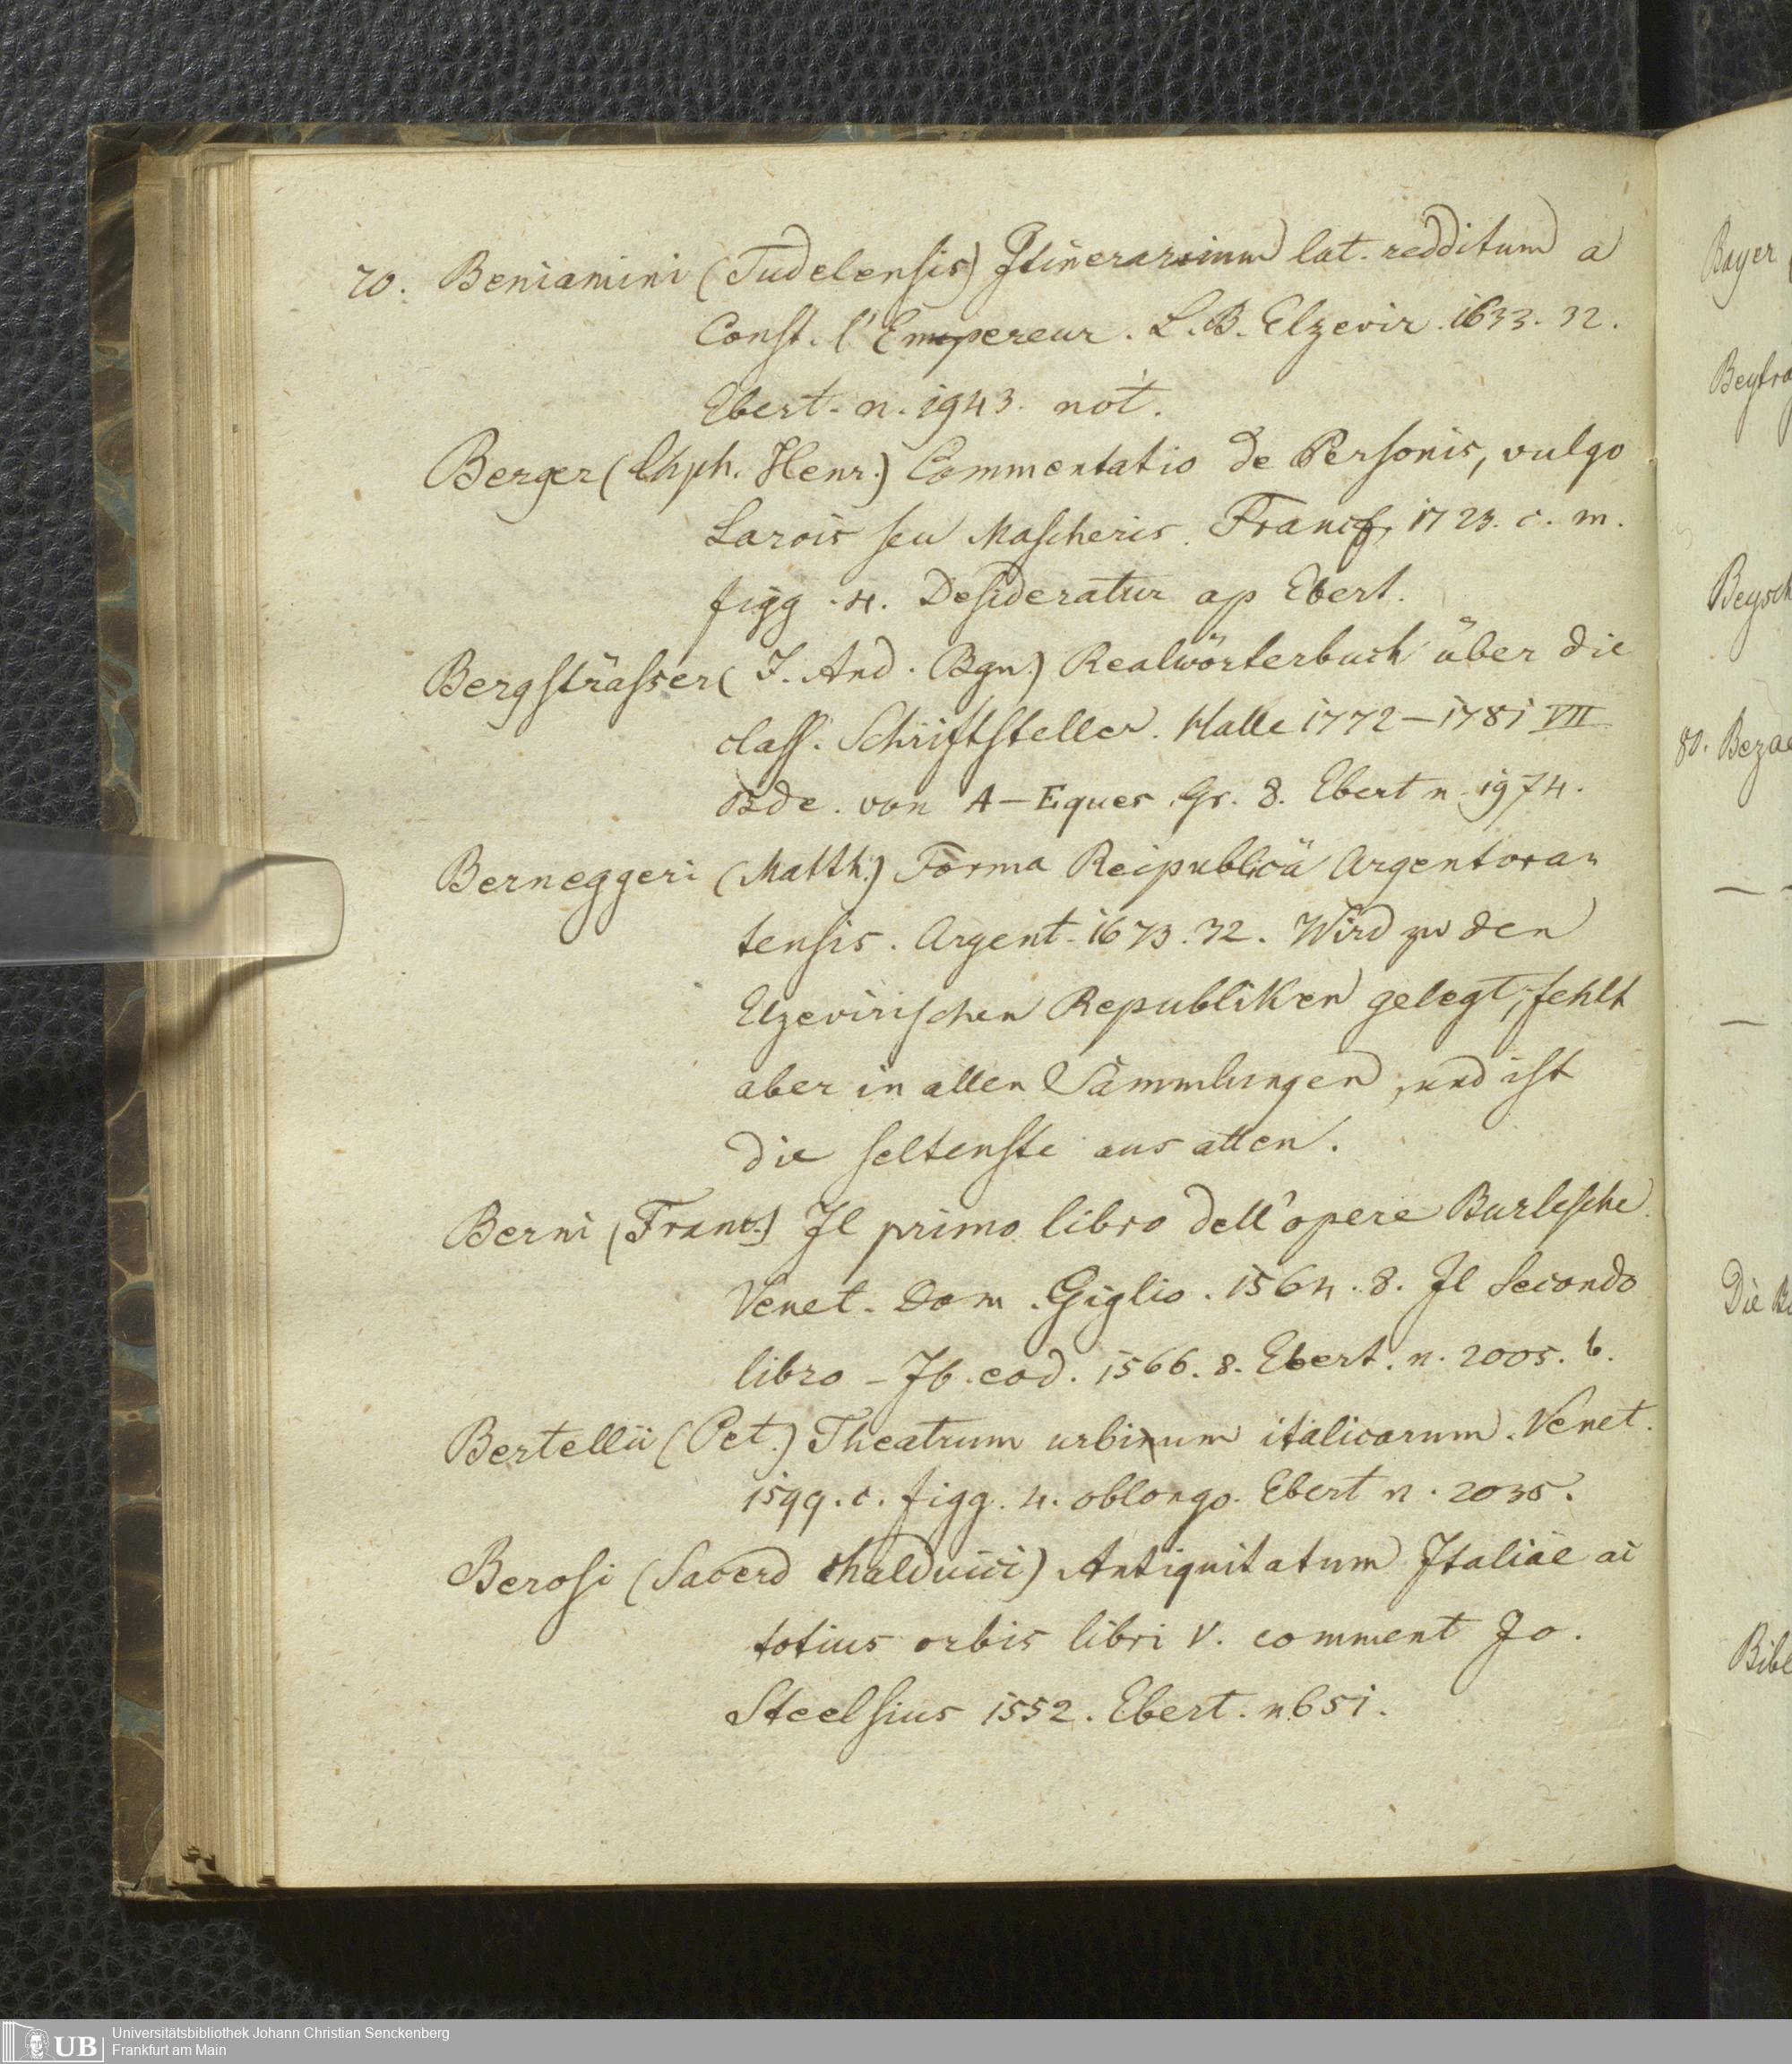 70. Beniamini (Tudelensis) Itinerarium lat. redditum a
Const. l'Empereur. L.B. Elzevir. 1633. 32.
Ebert. n. 1943. not.
Berger (Chph. Henr.) Commentatio de Personis, vulgo
Larvis seu Mascheris. Francf. 1723. c. m.
figg. 4. Desideratur ap Ebert.
Bergsträsser (J. And. Bgn.) Realwörterbuch über die
class. Schriftsteller. Halle 1772-1781 VII
Bde. von A-Eques. Gr. 8. Ebert n. 1974.
Berneggeri (Matth.) Forma Reipublicä Argentora-
tensis. Argent. 1673. 32. Wird zu den
Elzevirischen Republiken gelegt, fehlt
aber in allen Sammlungen, und ist
die seltenste aus allen.
Berni (Franc.) Il primo libro dell'opere Burlesche
Venet. Dom. Giglio. 1564. 8. Il Secondo
libro - Ib. eod. 1566. 8. Ebert. n. 2005. b.
Bertellii (Pet.) Theatrum urbium italicarum. Venet.
1599. c. figg. 4. oblongo. Ebert n. 2035.
Berosi (Sacerd chalduici) Antiquitatum Italiae ac
totius orbis libri V. comment Jo.
Steelsius 1552. Ebert. n 651.
Bayer
Beytra
Beysch
80. Bezae
Die B
Bibl
UB
Universitätsbibliothek Johann Christian Senckenberg
Frankfurt am Main